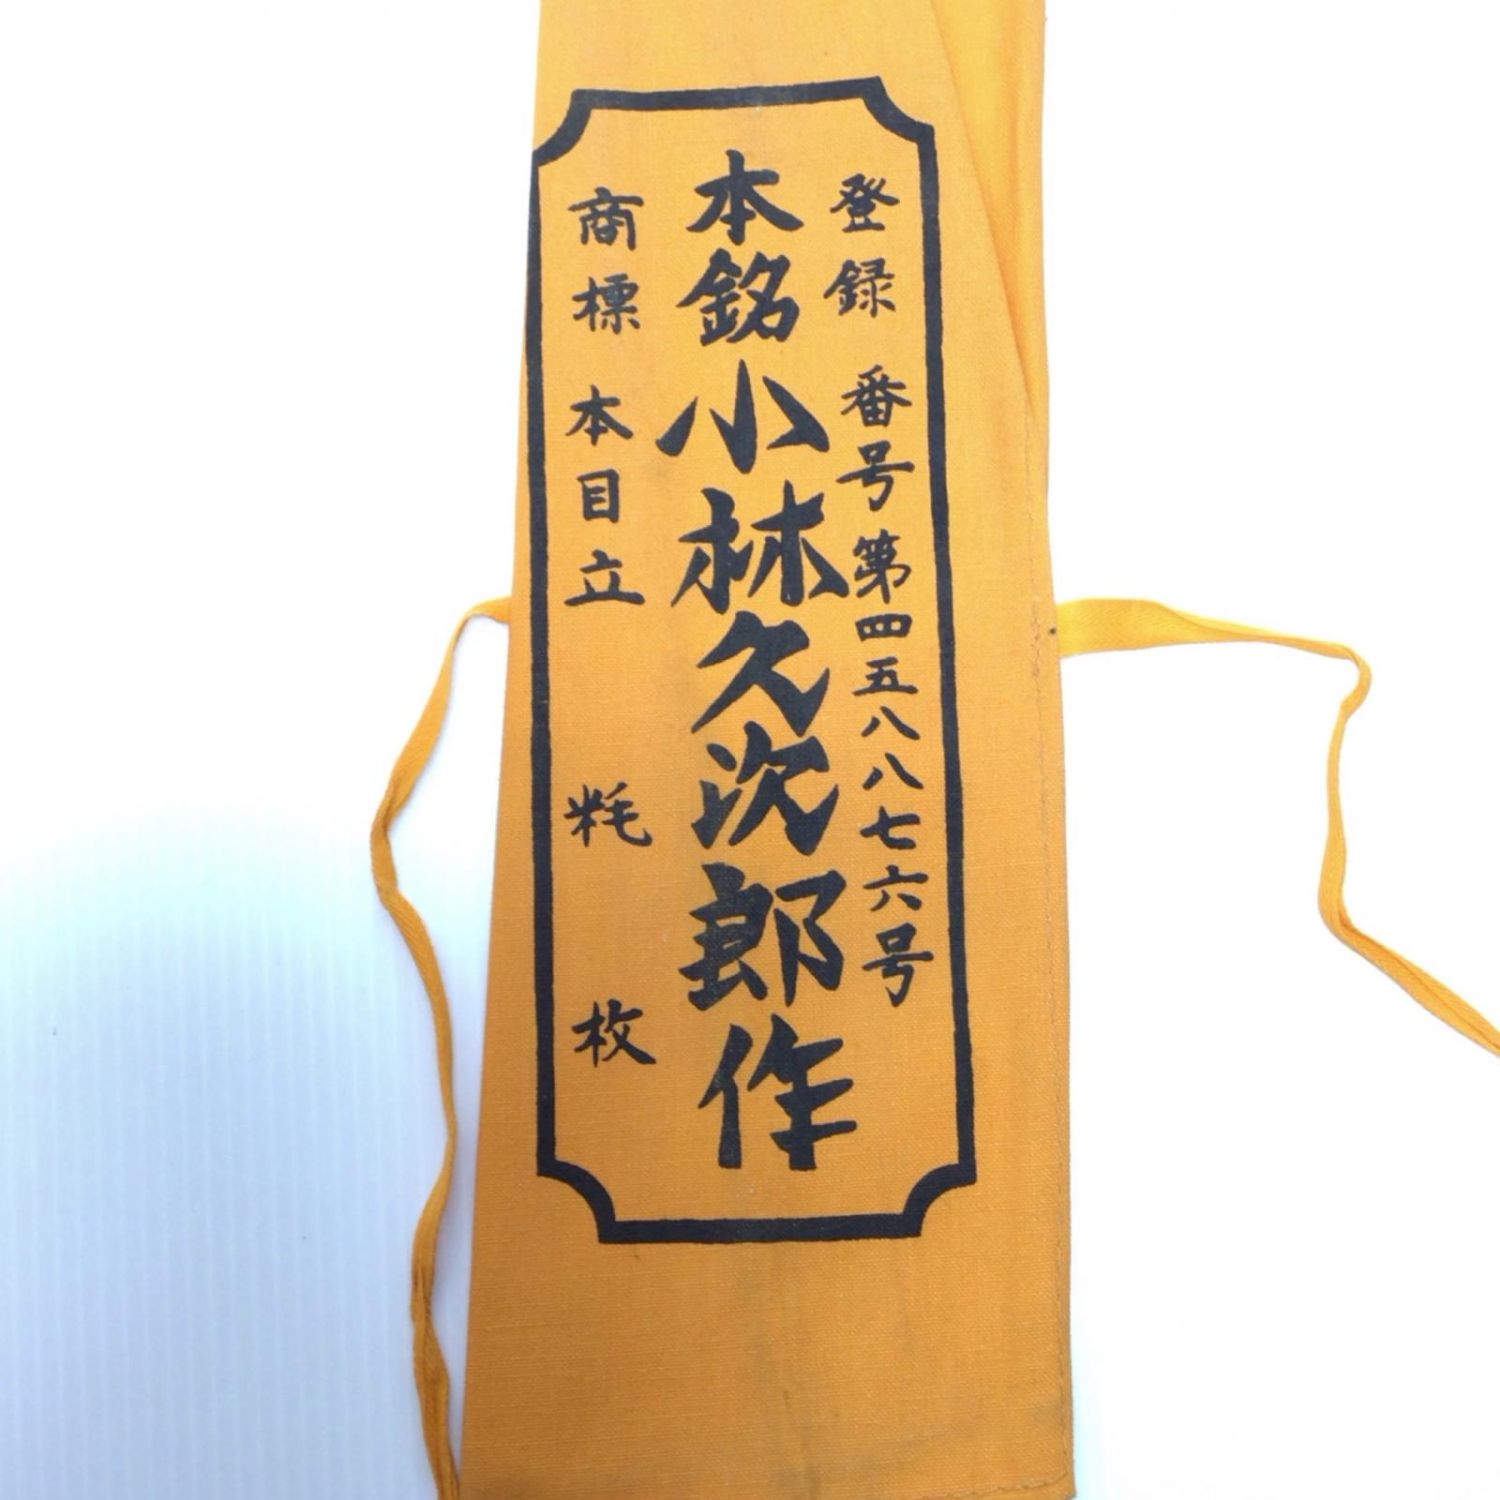 登録番号第四五八八七六号
本銘小林久次郎作
商標本目立 粍 枚